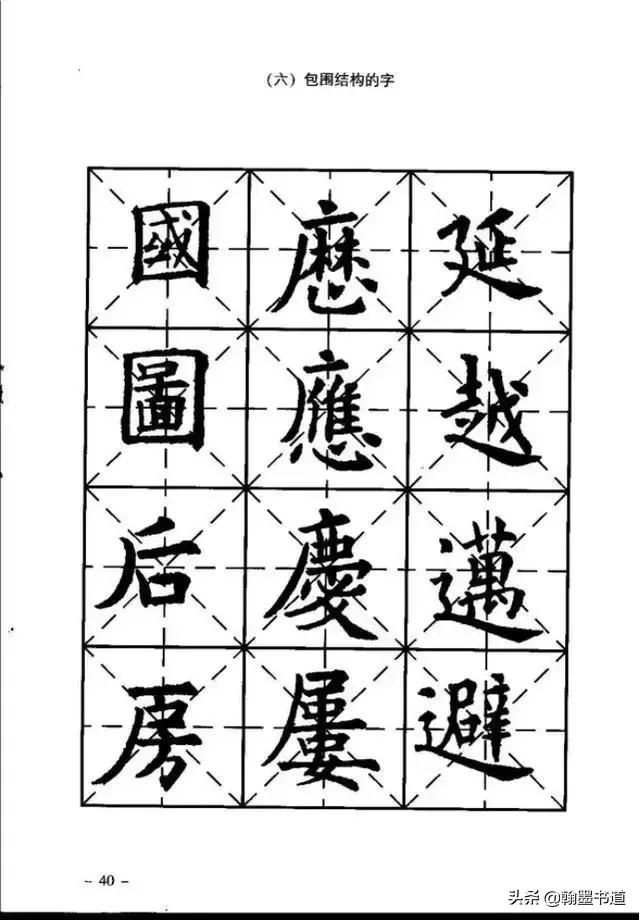 （六）包围结构的字
國 延
圖 應 越
后 慶 邁
房 屢 避
- 40 -
头条 @翰墨书道